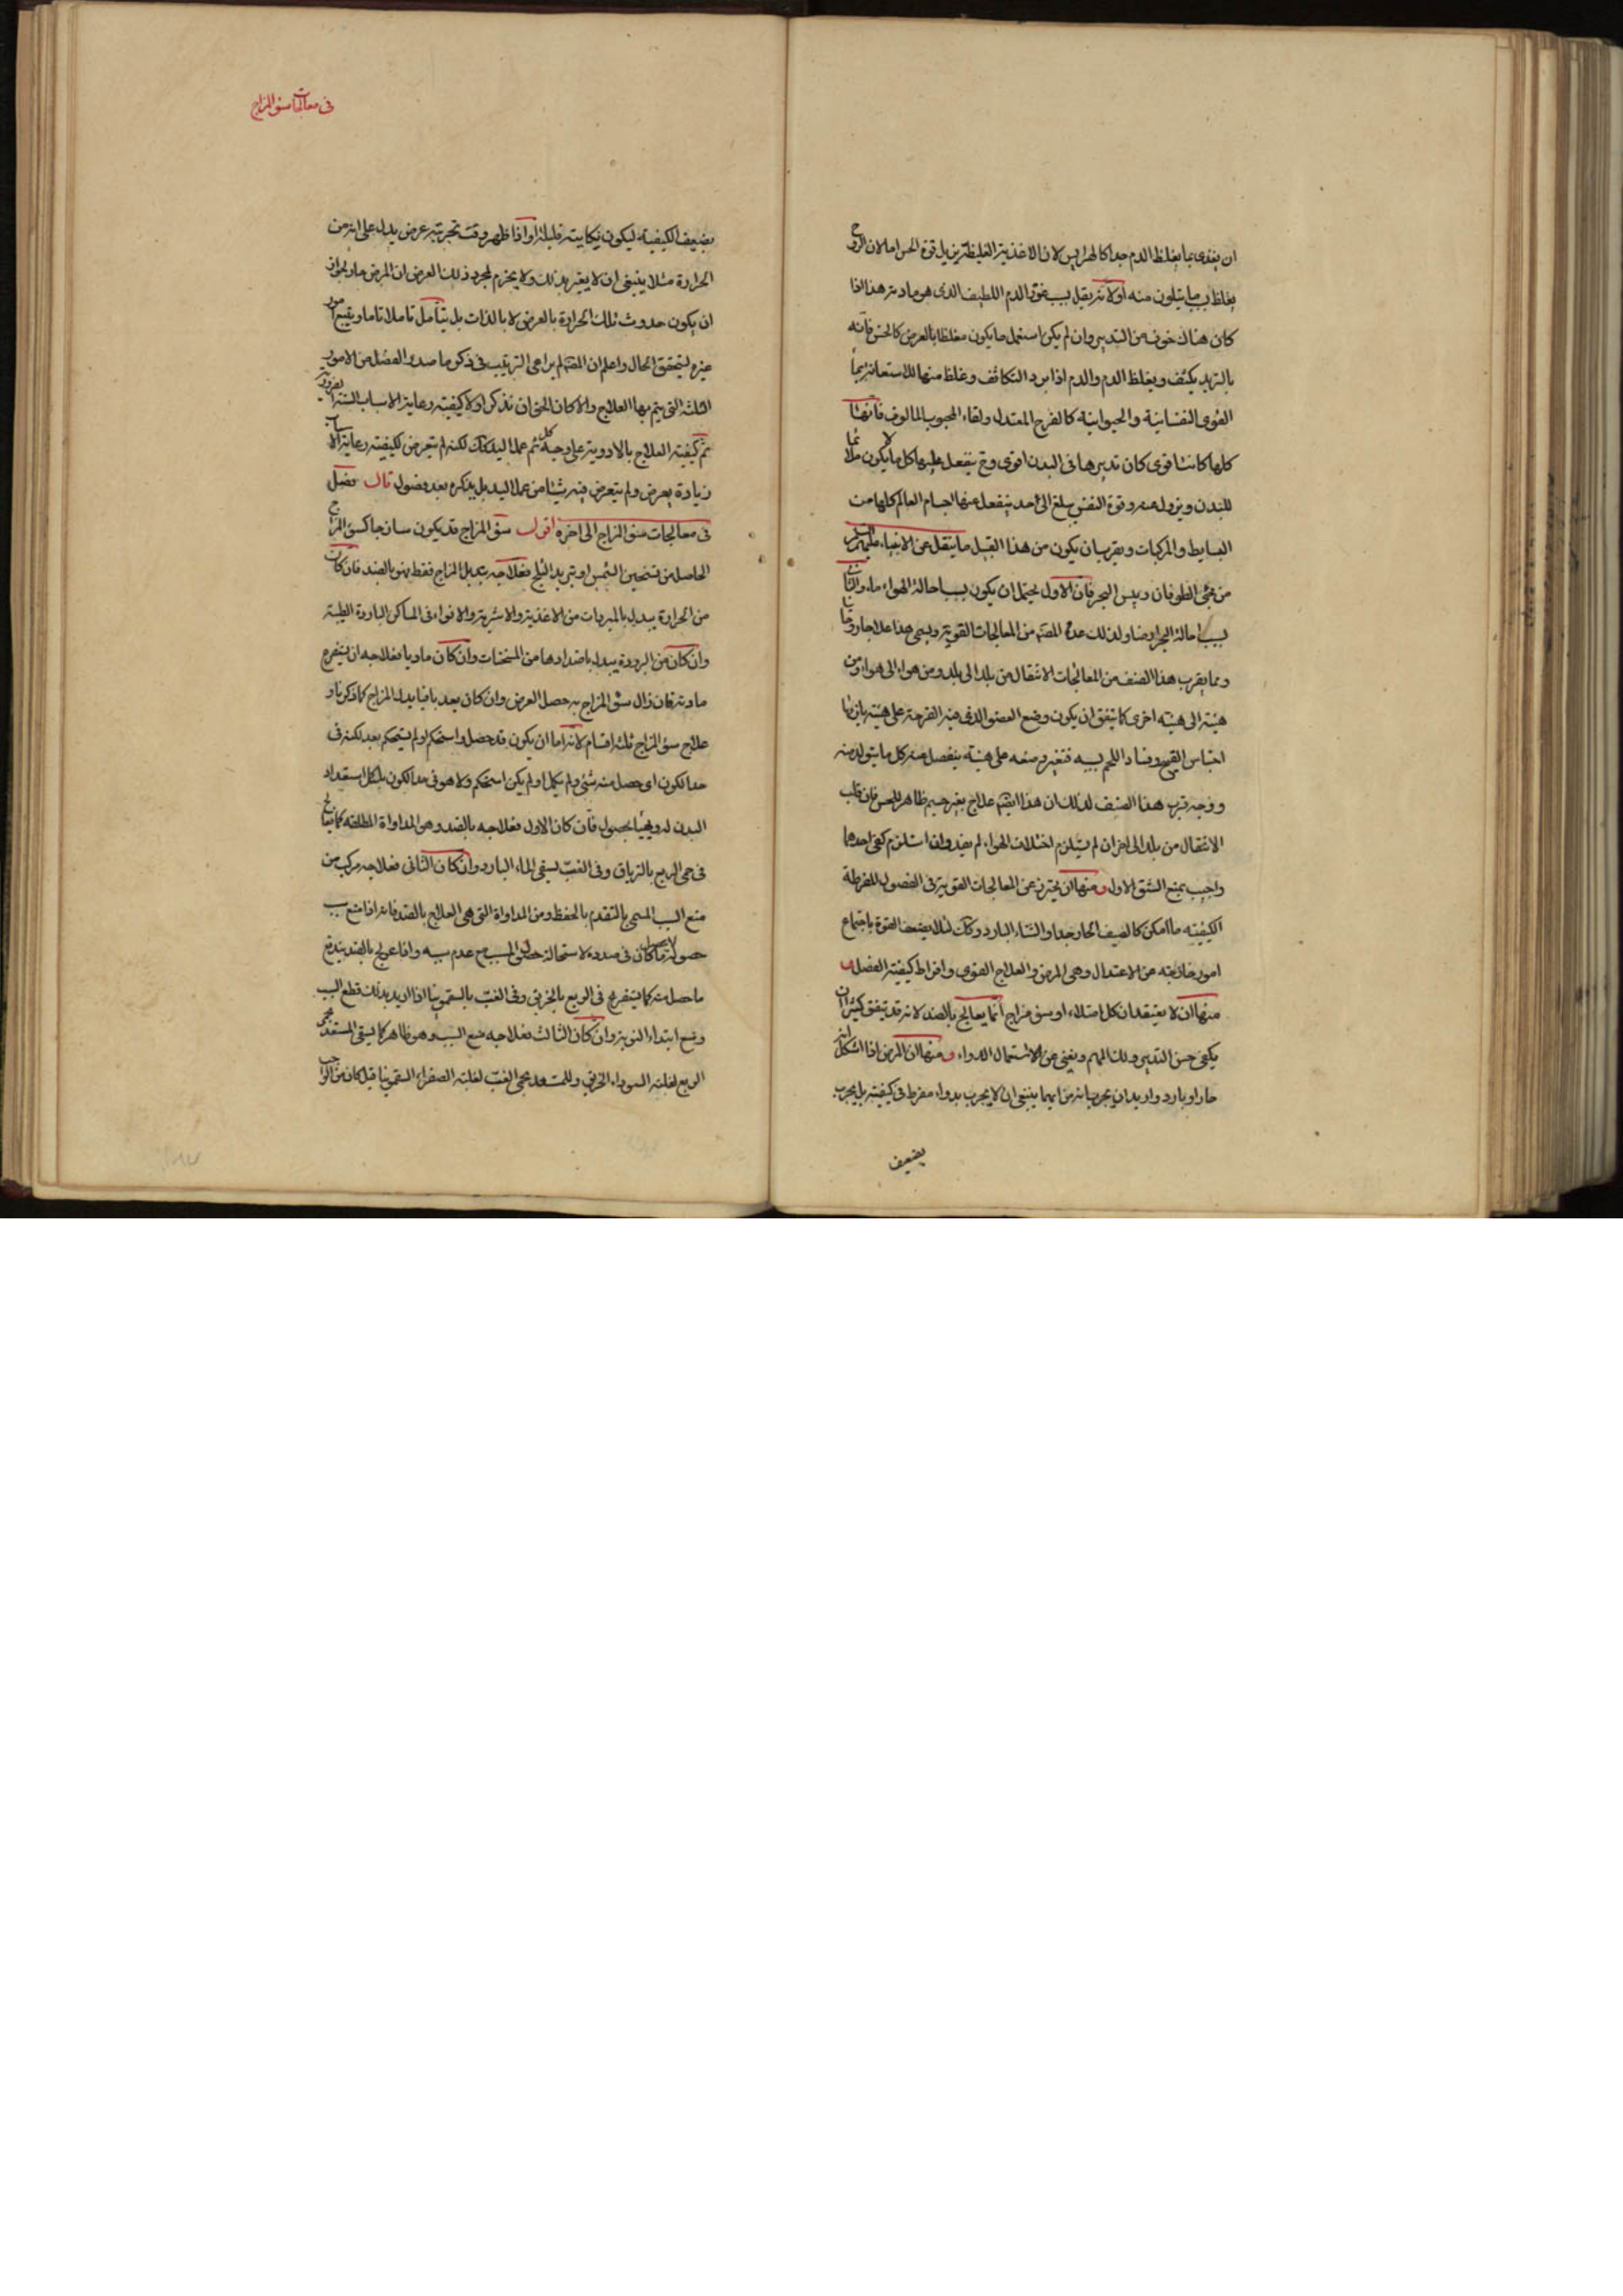 ان يغذى بما يغلظ الدم جدا كالهرايس لان الاغذية الغليظة يزيل قوة الحس اما لان الروح
يغلظ بسبب ما يتكون منه او لانه يقل بسبب عوز الدم اللطيف الذى هو مادته هذا اذا
كان هناك خوف من التدبير وان لم يكن استعمل ما يكون مغلظا بالعرض كالخس فانه
بالتبريد يكثف ويغلظ الدم والدم اذا برد التكاثف وغلظ منها الاستعانة بما
القوى النفسانية والحيوانية كالفرح المعتدل ولقاء المحبوب المالوف فانهما
كلما كانتا قوى كان تدبيرها فى البدن اقوى وح ينفعل عليها كل ما يكون ملائما
للبدن ويزول عنه وقوة النفس يبلغ الى حد ينفعل عنها اجسام العالم كلها من
البسايط والمركبات ويقرب ان يكون من هذا القبيل ما ينقل عن الانبياء عليهم السلم
من مجئ الطوفان ويبس البحر فان الاول يحتمل ان يكون بسبب احالة الهواء ماء والثانى
بسبب احالة البحر ارضا ولذلك عده المصنف من المعالجات القوية ويسمى هذا علاجا روحانيا
ومما يقرب هذا الصنف من المعالجات الانتقال من بلد الى بلد ومن هواء الى هواء ومن
هيئة الى هيئة اخرى كما يتفق ان يكون وضع العضو الذى فيه القرحة على هيئة يلزمها
احتباس القيح وفساد اللحم بسببه فتغير وضعه على هيئة ينفصل عنه كل ما يتولد منه
ووجه قرب هذا الصنف لذلك ان هذا ايضا علاج بغير جسم ظاهر للحس فان قلت
الانتقال من بلد الى اخر ان لم يستلزم اختلاف الهواء لم يفد وان استلزم كفى احدهما
واجيب بمنع الشق الاول ومنها ان يحترز عن المعالجات القوية فى الفصول المفرطة
الكيفية ما امكن كالصيف الحار جدا والشتاء البارد وذلك لئلا يضعف القوة باجتماع
امور خارجة عن الاعتدال وهى المرض والعلاج القوى وافراط كيفية الفصل و
منها ان لا يعتقد ان كل امتلاء او سوء مزاج انما يعالج بالضد لانه قد يتفق كثيرا ان
يكفى حسن التدبير ولك المهم ويغنى عن الاستعمال الدواء ومنها ان المرض اذا اشكل انه
حار او بارد واريد ان يجرب انه من ايهما ينبغى ان لا يجرب بدواء مفرط فى كيفيته بل يجرب
يضعيف
فى معالجات سوء المزاج
بضعيف الكيفية ليكون نكايته قليلة واذا ظهر وقت تجربته عرض يدل على انه من
الحرارة مثلا ينبغى ان لا يغتر بذلك ولا يجزم لمجرد ذلك العرض ان المرض حار لجواز
ان يكون حدوث تلك الحرارة بالعرض لا بالذات بل يتأمل تاملا تاما ويتبع امور
غيره ليتحقق الحال واعلم ان المصنف لم يراعى الترتيب فى ذكر ما صدر الفصل من الامور
الثلثة التى يتم بها العلاج والا كان الحق ان نذكر اولا كيفية رعاية الاسباب الستة الضرورية
ثم كيفية العلاج بالادوية على وجه كلى ثم عمل اليد كذلك لكنه لم يتعرض لكيفية رعاية الاسباب
زيادة بعرض ولم يتعرض فيه شيئا من عمل اليد بل يذكره بعد فصول قال فصل
فى معالجات سوء المزاج الى اخره اقول سوء المزاج قد يكون ساذجا كسوء المزاج
الحاصل من تسخين الشمس او تبريد الثلج فعلاجه تبديل المزاج فقط بهو بالضد فان كان
من الحرارة يبدل بالمبردات من الاغذية والاشربة والانواء فى المساكن الباردة الطيبة
وان كان من البرودة يبدل باضدادها من المسخنات وان كان ماديا فعلاجه ان يستفرغ
مادته فان زال سوء المزاج به حصل الغرض وان كان بعد باقيا يبدل المزاج كما ذكرنا و
علاج سوء المزاج ثلثة اقسام لانه اما ان يكون قد حصل واستحكم او لم يستحكم بعد لكنه فى
حد الكون اى حصل منه شئ ولم يكمل او لم يكن استحكم ولا هو فى حد الكون بل كل استعداد
البدن له ويتهيأ لحصول فان كان الاول فعلاجه بالضد وهى المداواة المطلقة كما يعالج
فى حمى الربع بالترياق وفى الغب ليسقى الماء البارد وان كان الثانى فعلاجه مركب من
منع السبب المسمى بالتقدم بالحفظ ومن المداواة التى هى العلاج بالضد فانه اذا منع سبب
حصوله لا يحصل ما كان فى صدده لاستحالة حصول المسبب مع عدم سببه واذا عولج بالضد يندفع
ما حصل منه كما يستفرغ فى الربع بالخربق وفى الغب بالسقمونيا اذا اريد بذلك قطع السبب
ومنع ابتداء النوبة وان كان الثالث فعلاجه منع السبب وهو ظاهر كما يسقى المستعد لحمى
الربع لغلبة السوداء الخربق وللمستعد لحمى الغب لغلبة الصفراء السقمونيا قيل كان من الواجب